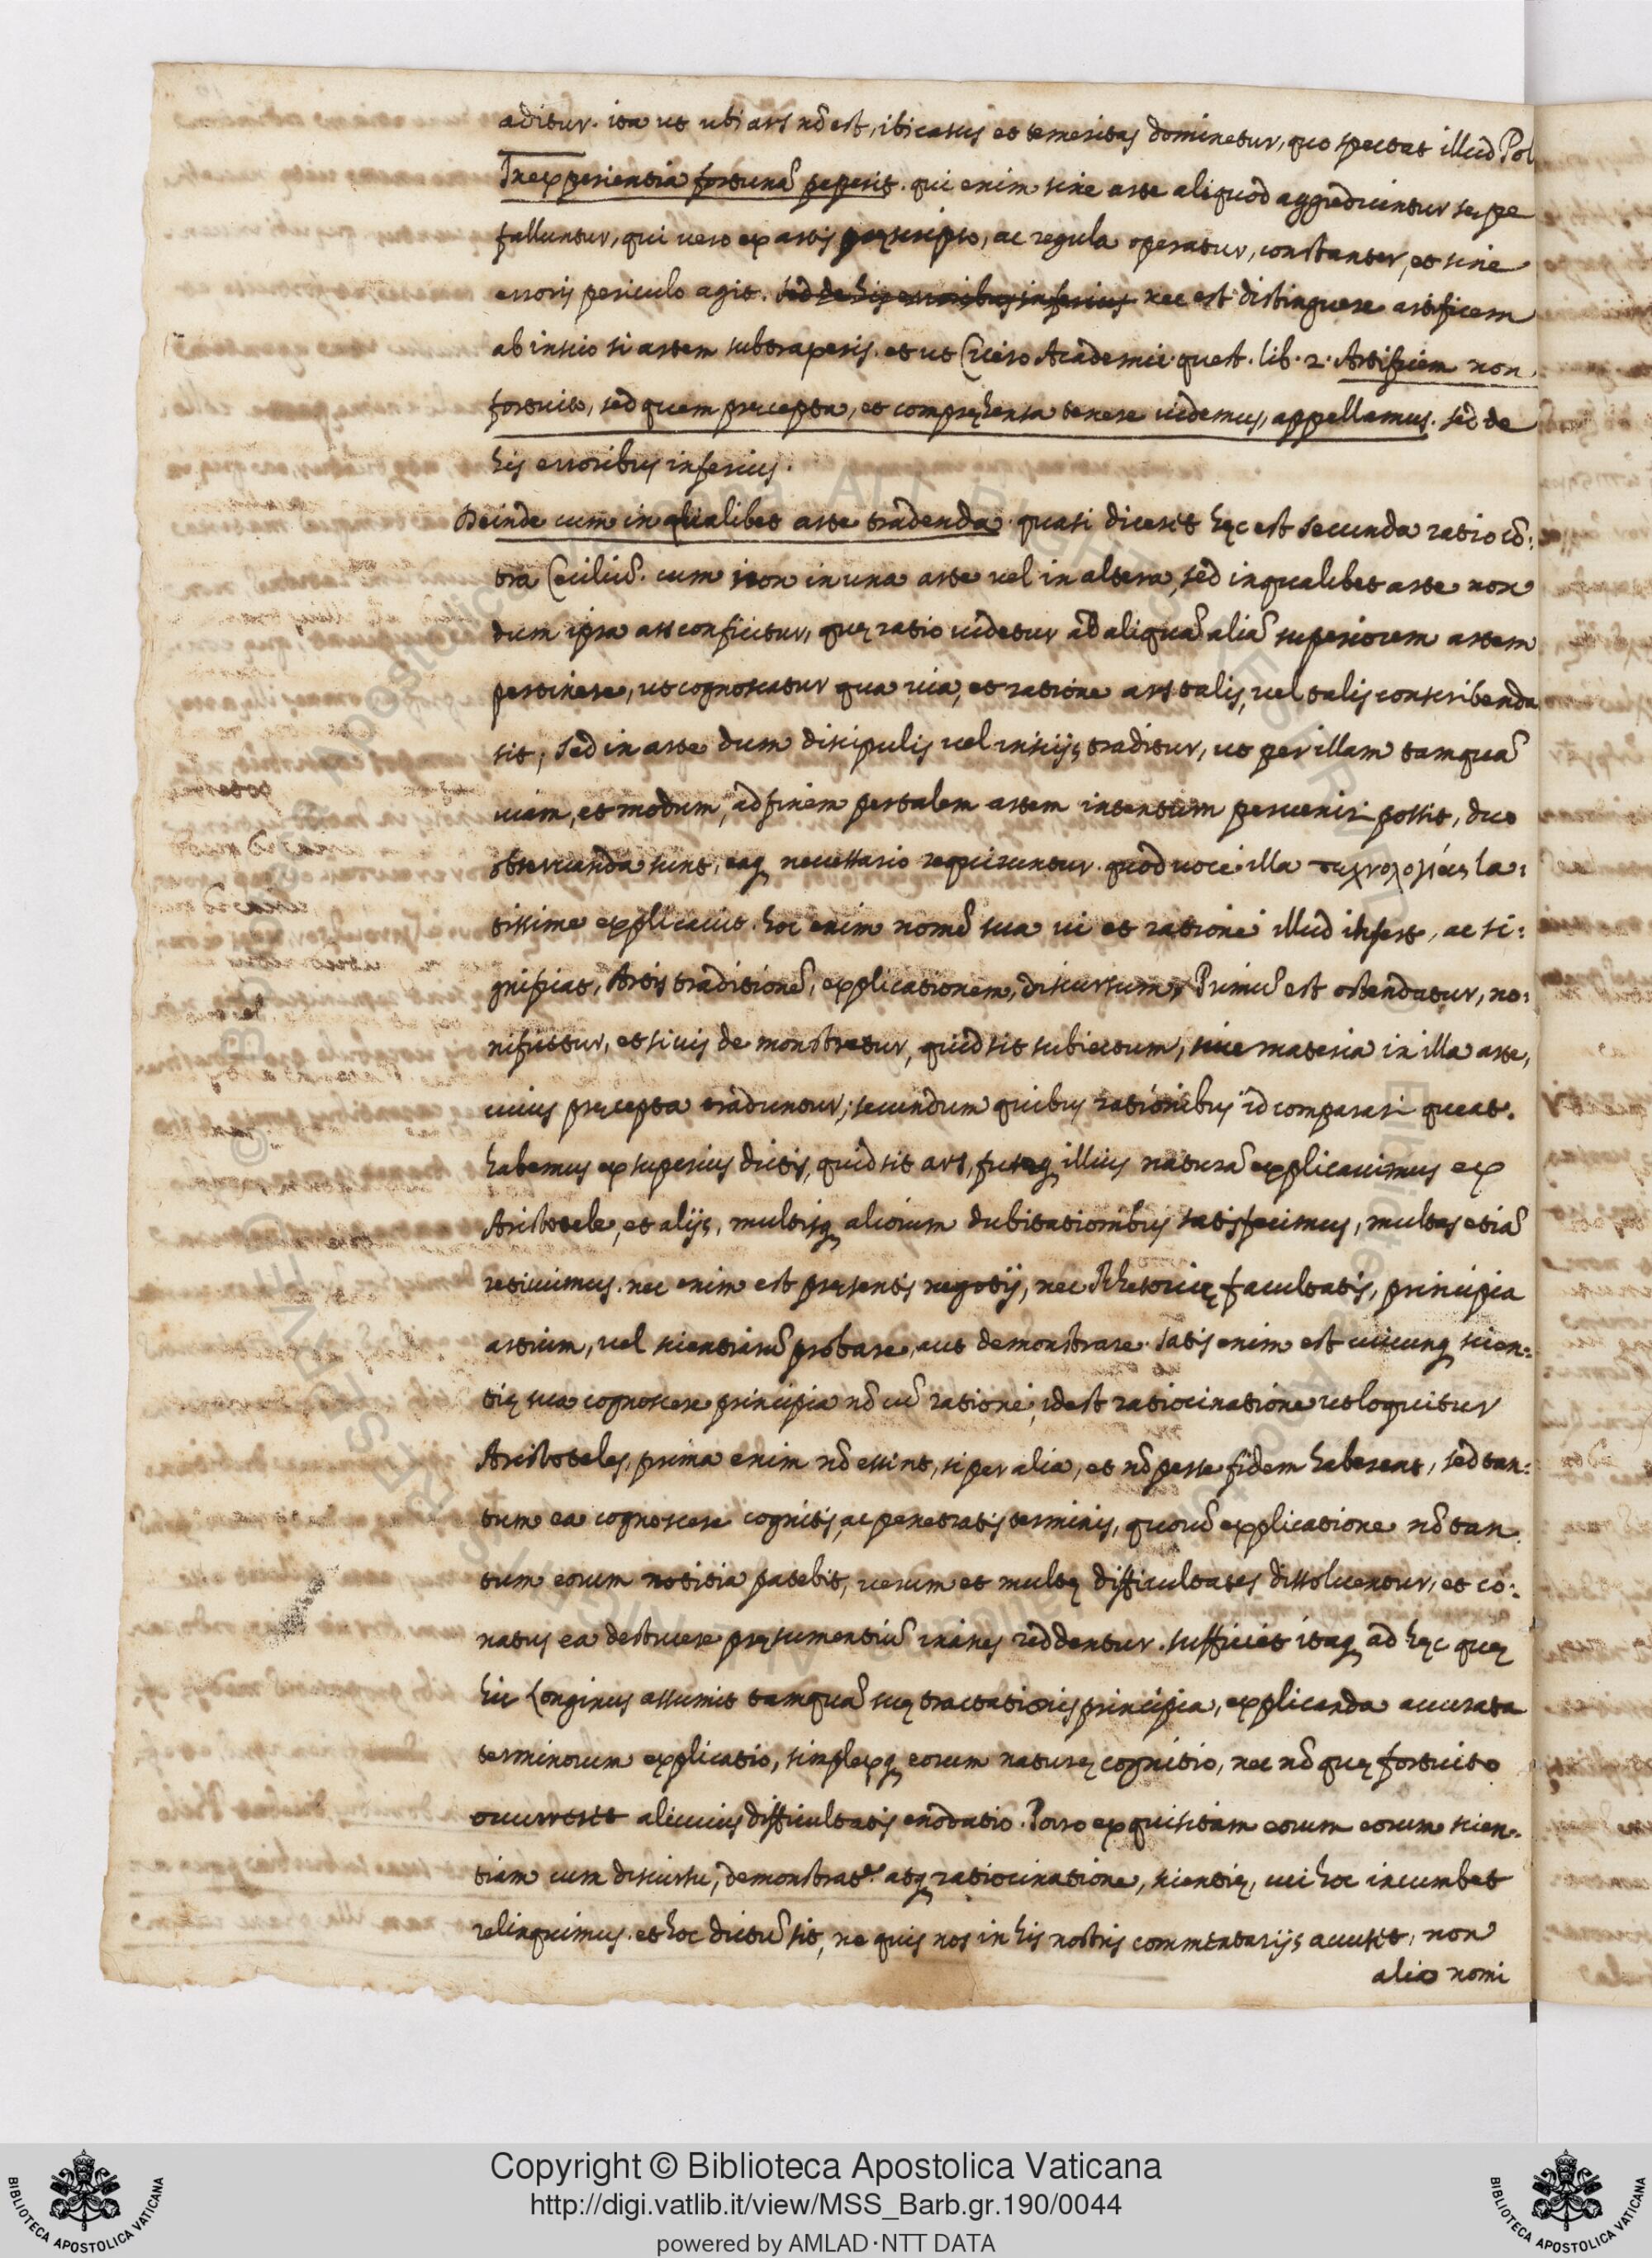 aditur. ita ut ubi ars nõ est, ibi casus et temeritas dominetur, quo spectat illud Pol
Inexperientia fortunã peperit. qui enim sine arte aliquod aggrediuntur sepe
falluntur, qui uero ex artis pręscripto, ac regula operatur, constanter, et sine
erroris periculo agit. sed de his erroribus inferius nec est distinguere artificem
ab inscio si artem subtraxeris. et ut Cicero Academic. quest. lib. 2. Artificem non
fortuito, sed quem precepta, et compręhensa tenere uidemus, appellamus. sed de
his erroribus inferius.
Deinde cum in qualibet arte tradenda. quasi dicerit hęc est secunda ratio cõ:
tra Ceciliũ. cum non in una arte uel in altera, sed in qualibet arte non
dum ipsa ars conficitur, quę ratio uidetur ad aliquã aliã superiorem artem
pertinere, ut cognoscatur qua uia, et ratione ars talis, uel talis conscribenda
sit, sed in arte dum discipulis uel inscijs traditur, ut per illam tamquã
uiam, et modum, ad finem per talem artem intentum perueniri possit, duo
obseruanda sunt, eaq necessario requiruntur. quod uoce illa τεχνολογίας la:
tissime explicauit. hoc enim nomẽ sua ui et ratione illud infert, ac si:
gnificat, Artis traditionẽ, explicationem, discursum, Primũ est ostendatur, no:
tificetur, et si uis demonstretur, quid sit subiectum, siue materia in illa arte,
cuius pręcepta traduntur; secundum quibus rationibus id comparari queat.
habemus ex superius dictis, quid sit ars, illius naturã explicauimus ex
Aristotele, et alijs, multisq aliorum dubitationibus satisfecimus, multas etiã
reticuimus. nec enim est pręsentis negotij, nec Rhetoricę facultatis, principia
artium, uel scientiarũ probare, aut demonstrare. satis enim est cuicunq scien:
tię sua cognoscere principia nõ cũ ratione, idest ratiocinatione ut loquitur
Aristoteles, prima enim nõ essent, si per alia, et nõ per se fidem haberent, sed tan:
tum ea cognoscere cognitis, ac penetratis terminis, quorũ explicatione nõ tan
tum eorum notitia patebit, uerum et multę difficultates dissoluentur, et co:
natus ea destruere pręsumentiũ inanes reddentur. sufficiet itaq ad hęc quę
hic Longinus assumit tamquã suę tractationis principia, explicanda accurata
terminorum explicatio, simplexq eorum naturę cognitio, nec nõ quę fortuito
occurrerit alicuius difficultatis enodatio. Porro exquisitam eorum eorum scien:
tiam cum discursu, demonstrat.e atq ratiocinatione, scientię, cui hoc incumbet
relinquimus. et hoc dictũ sit, ne quis nos in his nostris commentarijs accuset, non
alio nomi
Copyright © Biblioteca Apostolica Vaticana
http://digi.vatlib.it/view/MSS_Barb.gr.190/0044
powered by AMLAD·NTT DATA
BIBLIOTECA APOSTOLICA VATICANA
BIBLIOTECA APOSTOLICA VATICANA